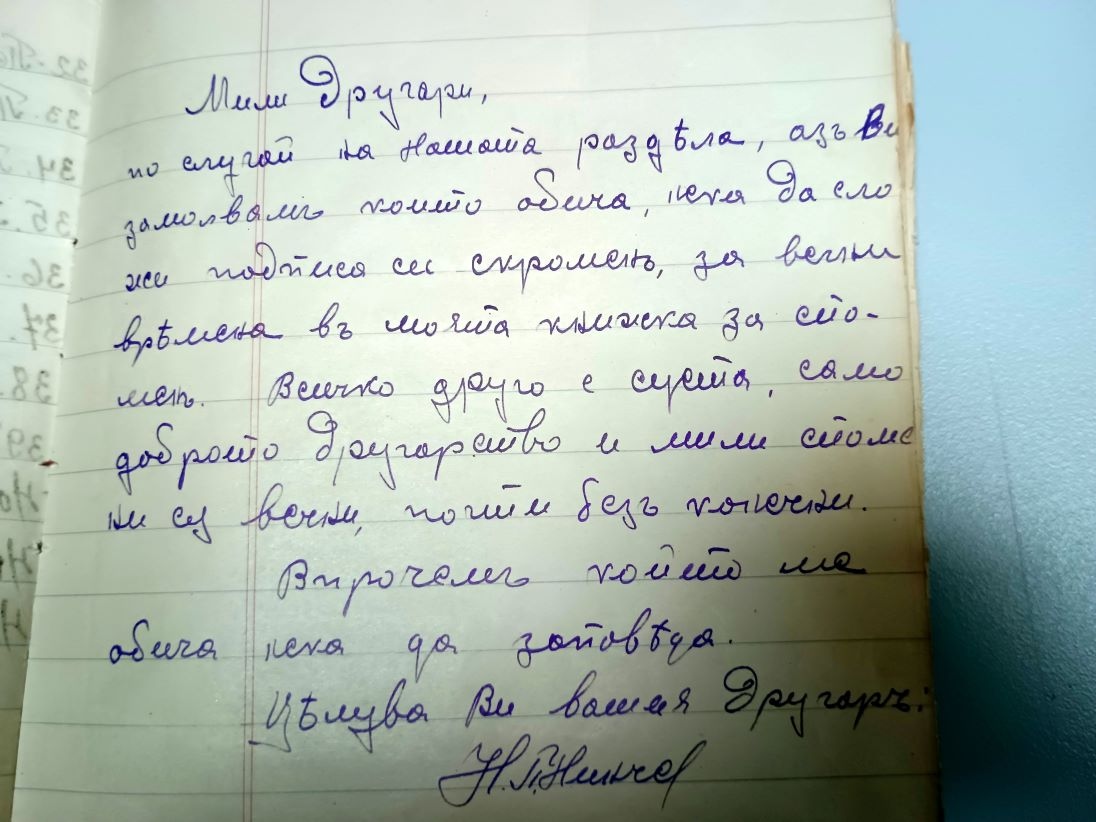 Мили Другари,
по случай на нашата раздѣла, азъ Ви
замолвамъ който обича, нека да сло
жи подписа си скроменъ, за вечни
врѣмена въ моята книжка за спо-
менъ. Всичко друго е суета, само
доброто Другарство и мили споме
ни су вечни, почти безъ конечни.
Впрочемъ който ме
обича нека да заповѣда.
Цѣлува Ви вашия Другаръ:
Н.П.Нинчев
32.
33. П
34.
35.
36.
37.
38.
39